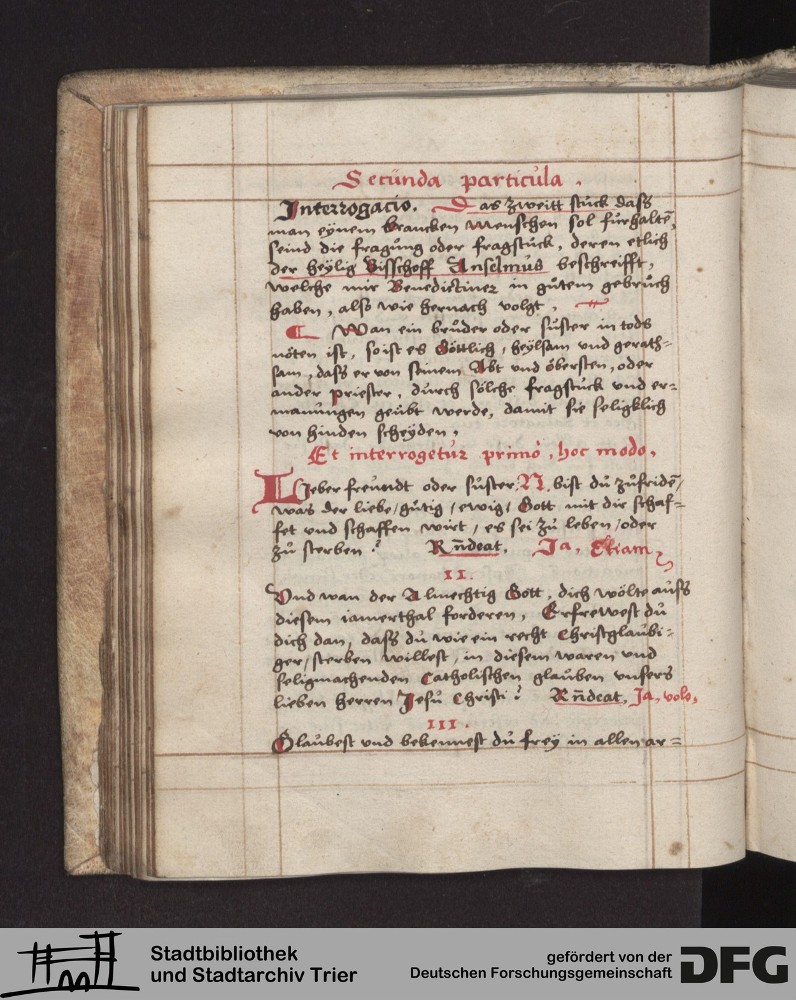 Secunda particula.
Interrogacio. Das zweitt stuck dass
man eÿnem krancken menschen sol furhaltē,
seind die fragung oder fragstuck, deren etlich
der heÿlig Bisschoff Anselmus beschreifft,
welche mir Benedictiner in gutem gebruch
haben, also wie hernach volgt,
Wan ein bruder oder suster in tods
nöten ist, so ist es Göttlich, heÿlsam und gerath=
sam, dass er von seinem Abt und öbersten, oder
ander priester, durch sölche fragstuck und er=
manungen geubt werde, damit sie seligklich
von hinden scheÿden,
Et interrogetur primo, hoc modo,
Lieber freundt oder suster N. bist du zufridē,
was der liebe, gütig, ewig, Gott mit dir schaf=
fet und schaffen wirt, es sei zu leben, oder
zu sterben? Rn̄deat, Ja, Etiam,
II.
Vnd wan der Almechtig Gott, dich wölte auss
diesem iamerthal forderen, Erfrewest du
dich dan, dass du wie ein recht Christglaubi=
ger, sterben willest, in diesem waren vnd
seligmachenden Catholischen glauben vnsers
lieben herren Jesu Christi? Rn̄deat, Ja, volo,
III.
Glaubest vnd bekennest du freÿ in allen ar=
Stadtbibliothek
und Stadtarchiv Trier
gefördert von der
Deutschen Forschungsgemeinschaft
DFG